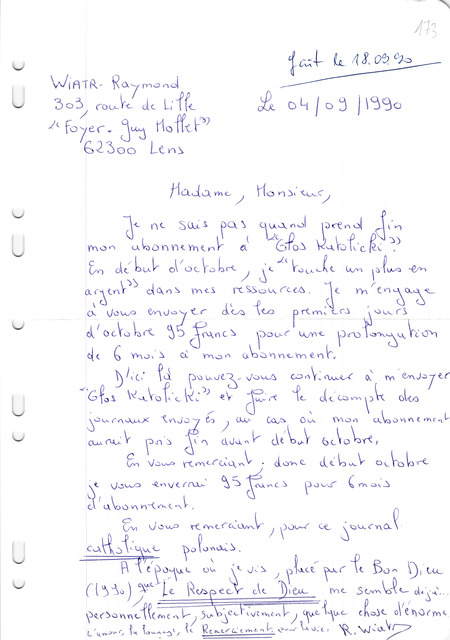 173
fait le 18.09.90
WIATR - Raymond
303, route de Lille
"Foyer - Guy Mollet"
62300 Lens
Le 04/09/1990
Madame, Monsieur,
Je ne sais pas quand prend fin
mon abonnement à "Głos Katolicki".
En début d'octobre, je "touche un plus en
argent" dans mes ressources. Je m'engage
à vous envoyer dès les premiers jours
d'octobre 95 francs pour une prolongation
de 6 mois à mon abonnement.
D'ici là pouvez-vous continuer à m'envoyer
"Głos Katolicki" et faire le décompte des
journaux envoyés, au cas où mon abonnement
aurait pris fin avant début octobre.
En vous remerciant, donc début octobre
je vous enverrai 95 francs pour 6 mois
d'abonnement.
En vous remerciant, pour ce journal
catholique polonais.
A l'époque où je vis, placé par le Bon Dieu
(1990) que Le Respect de Dieu me semble déjà...
personnellement, subjectivement, quelque chose d'énorme
L'amour, la louange, le Remerciement pour la vie. R. Wiatr